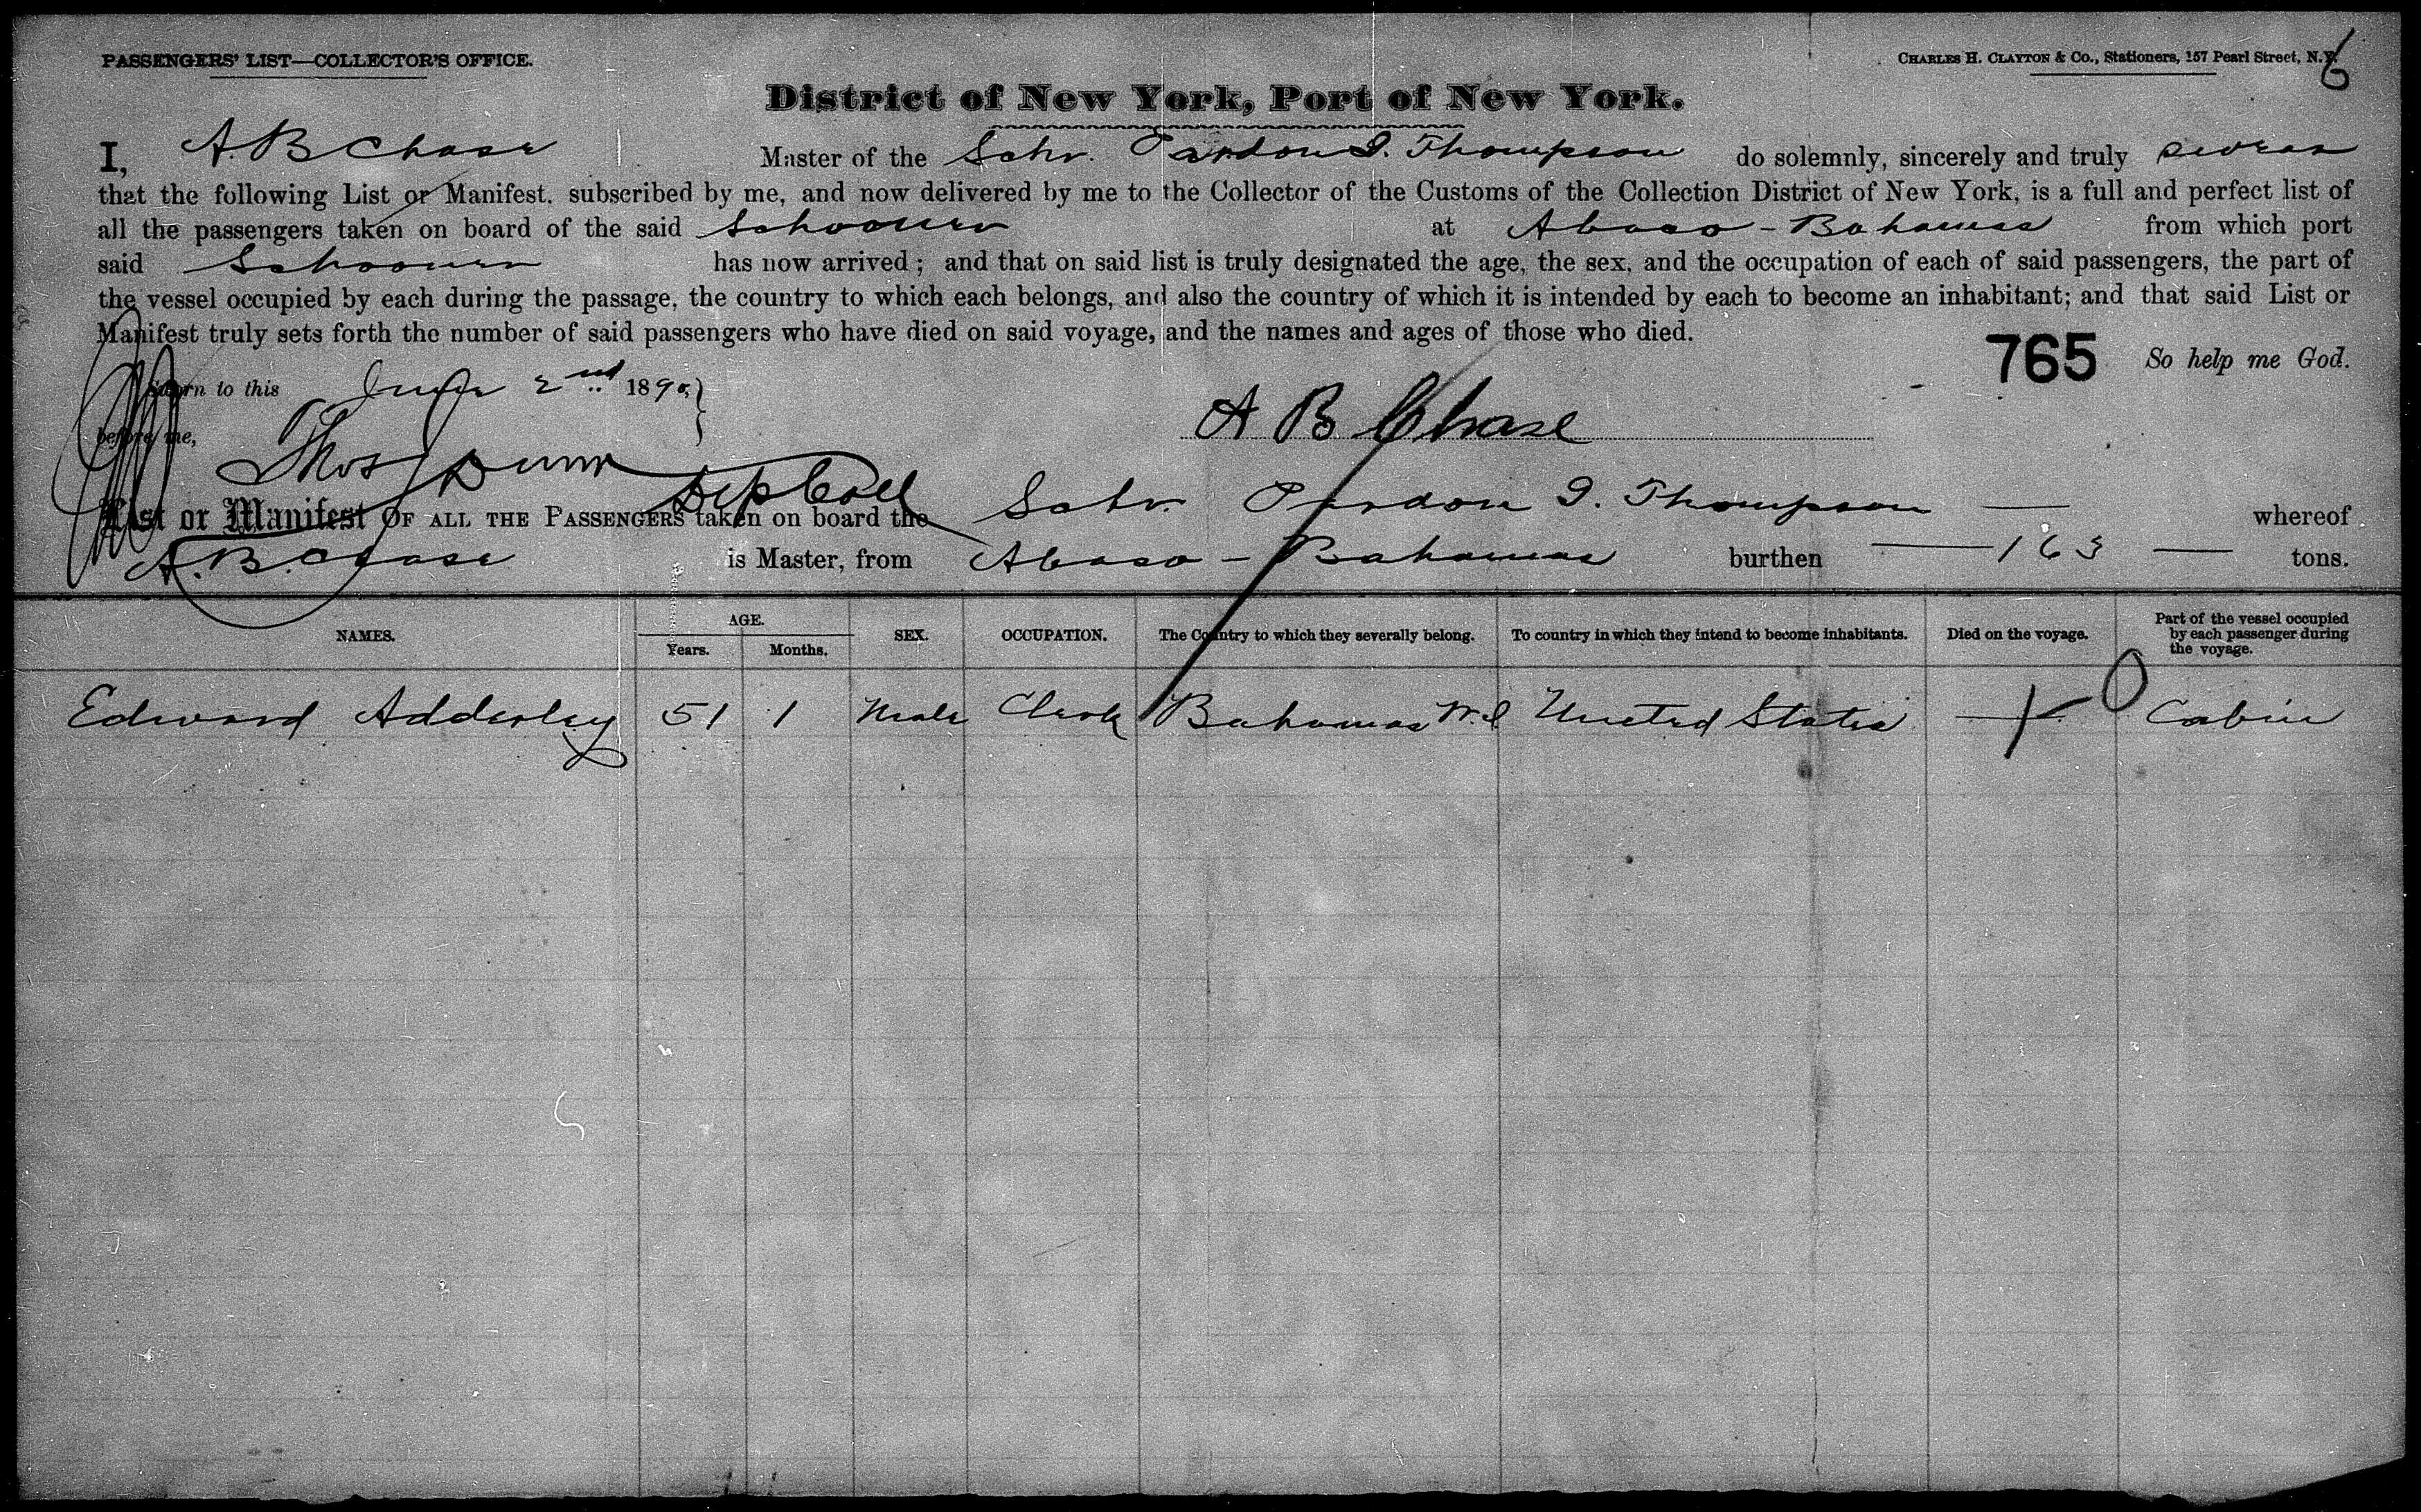 PASSENGERS' LIST—COLLECTOR'S OFFICE.
CHARLES H. CLAYTON & Co., Stationers, 157 Pearl Street, N.Y.
6
District of New York, Port of New York.
I, A. B Chase Master of the Schr. Pardon G. Thompson do solemnly, sincerely and truly swear
that the following List or Manifest, subscribed by me, and now delivered by me to the Collector of the Customs of the Collection District of New York, is a full and perfect list of
all the passengers taken on board of the said Schooner at Abaco - Bahamas from which port
said Schooner has now arrived; and that on said list is truly designated the age, the sex, and the occupation of each of said passengers, the part of
the vessel occupied by each during the passage, the country to which each belongs, and also the country of which it is intended by each to become an inhabitant; and that said List or
Manifest truly sets forth the number of said passengers who have died on said voyage, and the names and ages of those who died.
765 So help me God.
Sworn to this 2nd 1890,
A B Chase
before me,
Thos Dunn Dep Coll
List or Manifest OF ALL THE PASSENGERS taken on board the Schr. Pardon G. Thompson — whereof
A. B. Chase is Master, from Abaco - Bahamas burthen — 163 — tons.
NAMES. AGE. Years. Months. SEX. OCCUPATION. The Country to which they severally belong. To country in which they intend to become inhabitants. Died on the voyage. Part of the vessel occupied by each passenger during the voyage.
Edward Adderley 51 1 Male Clerk Bahamas W.I United States — 0 Cabin